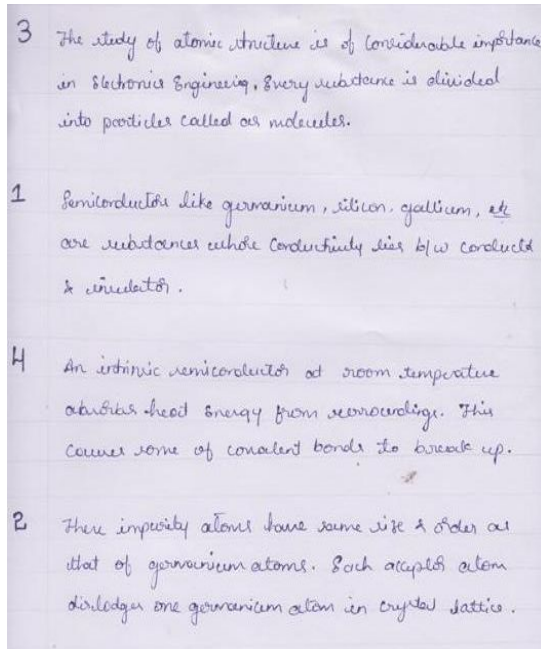 3 The study of atomic structure is of considerable importance
in Electronics Engineering, Every substance is divided
into particles called as molecules.
1 Semiconductors like germanium, silicon, gallium, etc
are substances whose conductivity lies b/w conductor
& insulator.
4 An intrinsic semiconductor at room temperature
absorbs heat Energy from surroundings. This
causes some of covalent bonds to break up.
2 These impurity atoms have same size & order as
that of germanium atoms. Each acceptor atom
dislodges one germanium atom in crystal lattice.